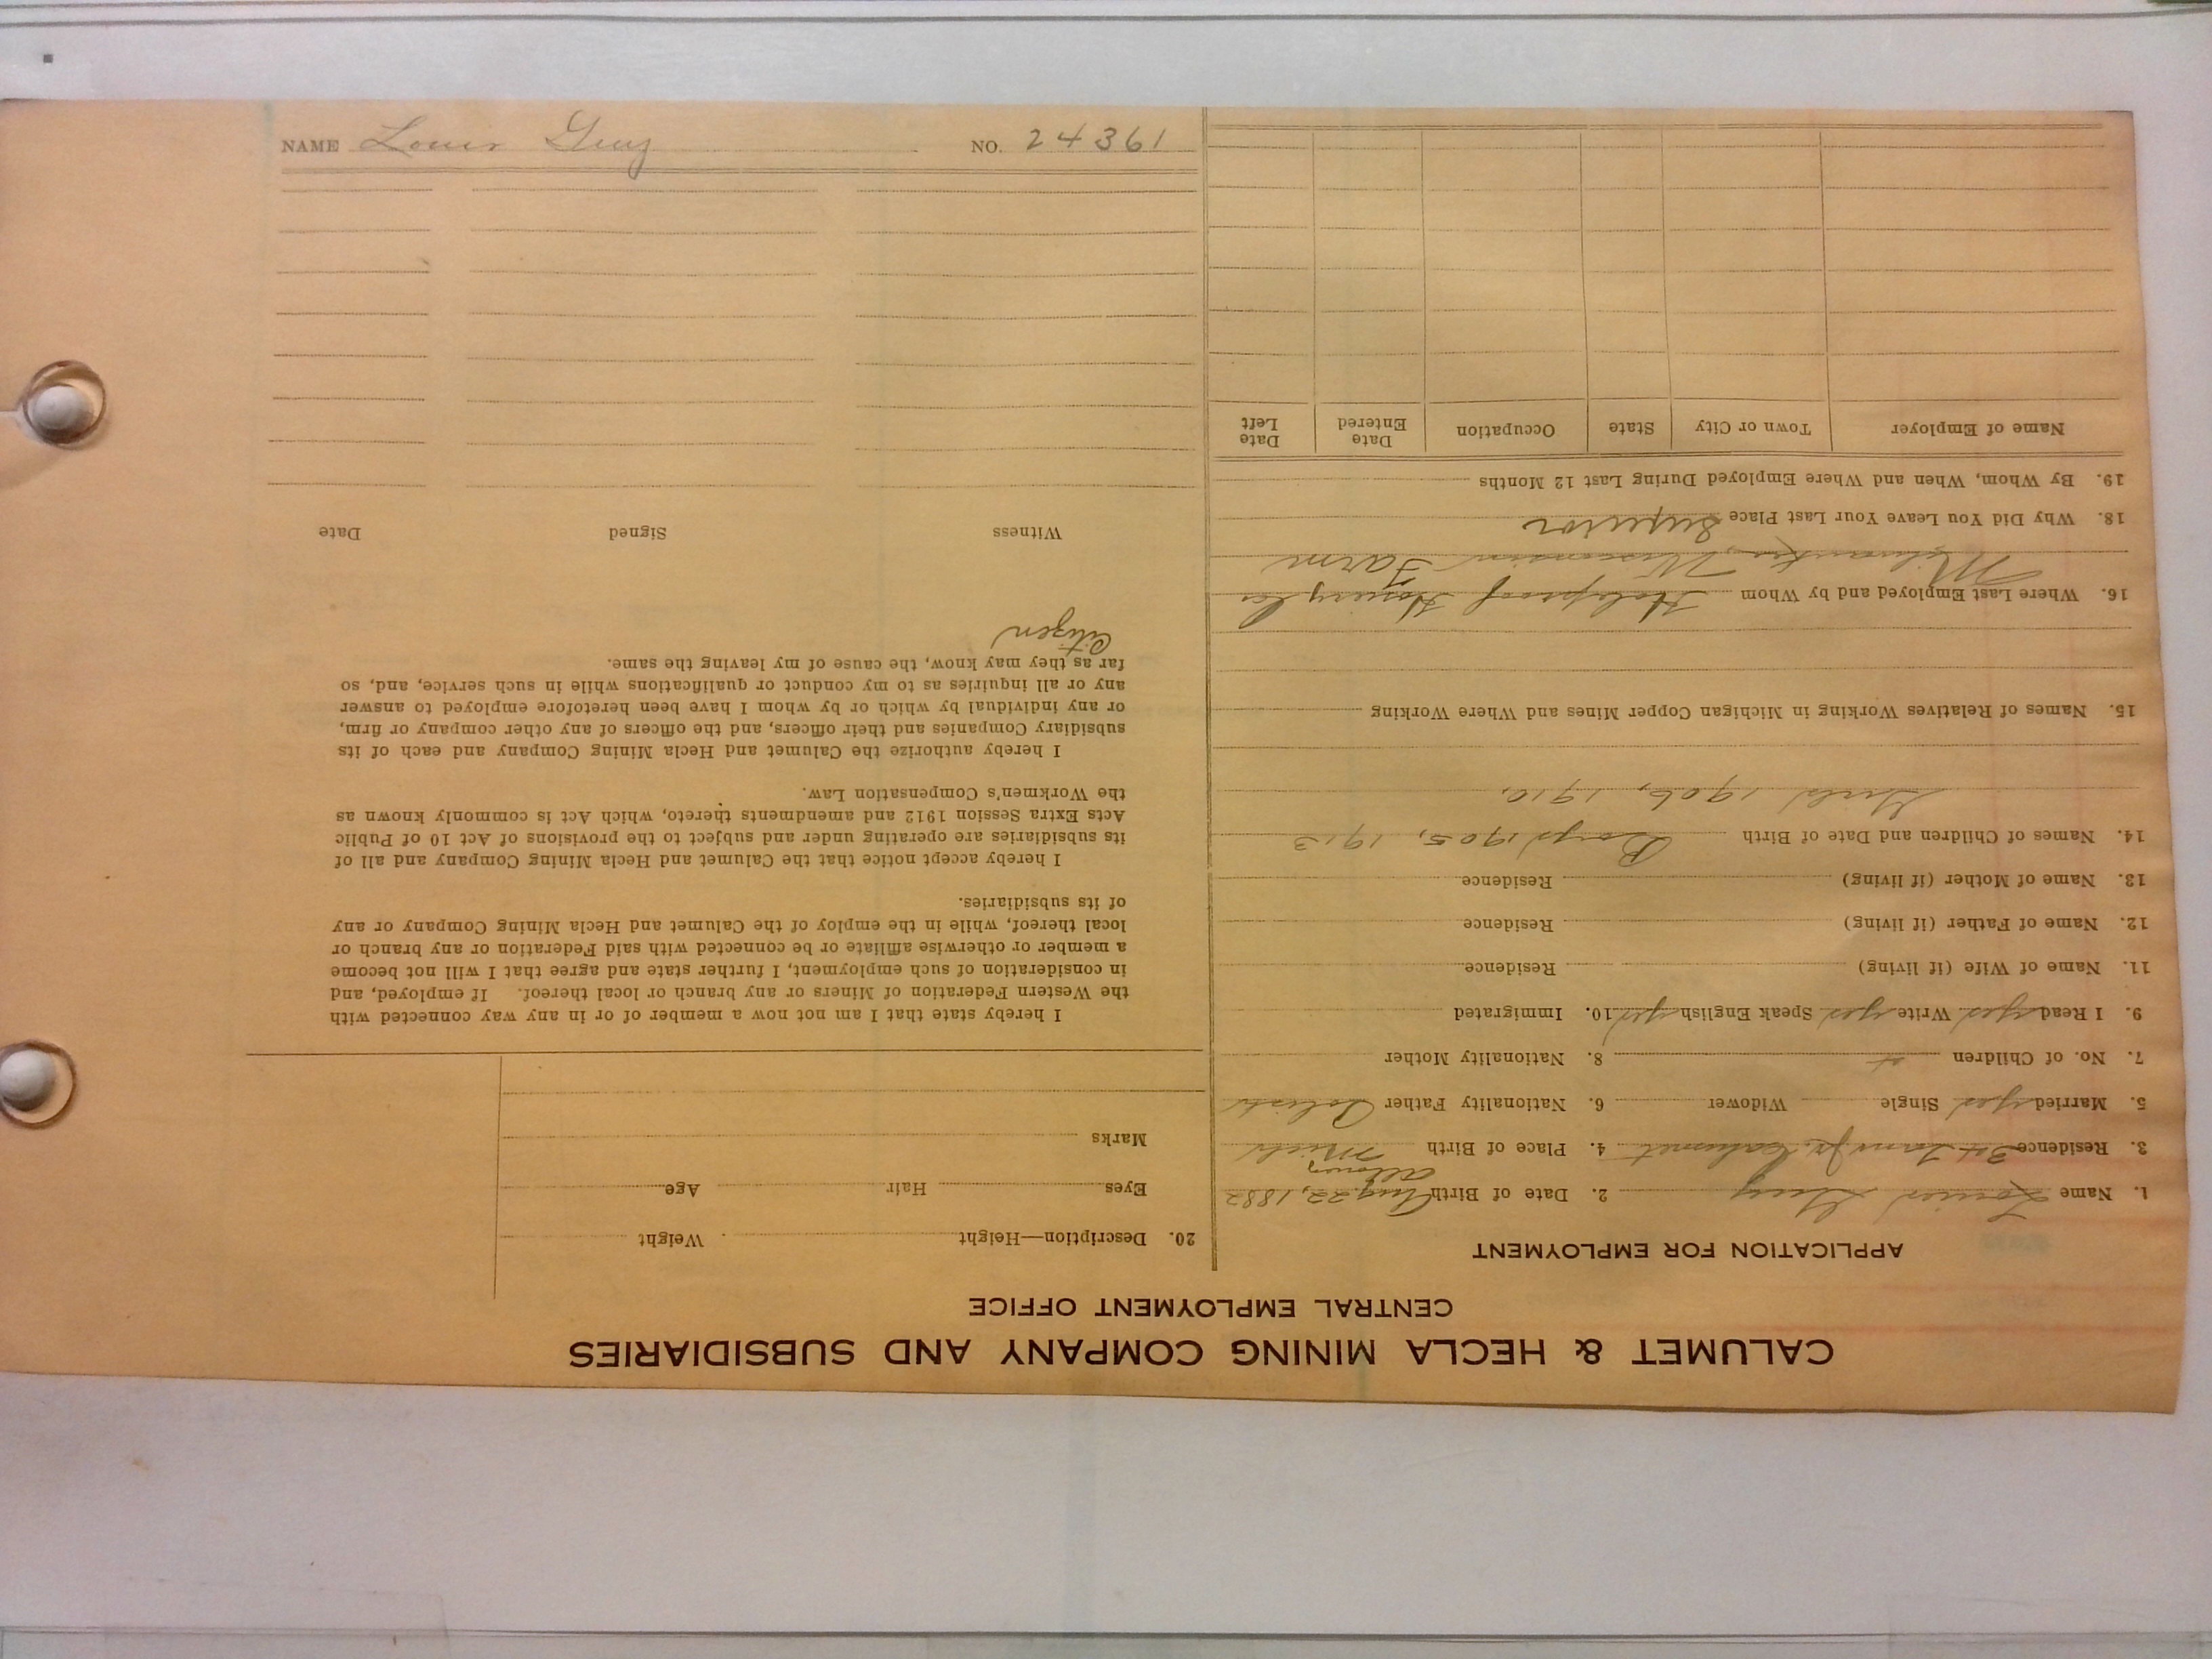 CALUMET & HECLA MINING COMPANY AND SUBSIDIARIES
CENTRAL EMPLOYMENT OFFICE
APPLICATION FOR EMPLOYMENT
1. Name Louis 2. Date of Birth Aug. 22, 1882
Allouez
3. Residence Calumet 4. Place of Birth Mich
5. Married yes Single Widower 6. Nationality Father Polish
7. No. of Children 4 8. Nationality Mother
9. I Read yes Write yes Speak English yes 10. Immigrated
11. Name of Wife (if living) Residence
12. Name of Father (if living) Residence
13. Name of Mother (if living) Residence
14. Names of Children and Date of Birth Boys 1905, 1913
Girls 1906, 1910,
15. Names of Relatives Working in Michigan Copper Mines and Where Working
16. Where Last Employed and by Whom Holeproof Hosiery Co
Milwaukee, Wisconsin Farm
18. Why Did You Leave Your Last Place Superior
19. By Whom, When and Where Employed During Last 12 Months
Name of Employer Town or City State Occupation Date Entered Date Left
20. Description—Height Weight
Eyes Hair Age
Marks
I hereby state that I am not now a member of or in any way connected with
the Western Federation of Miners or any branch or local thereof. If employed, and
in consideration of such employment, I further state and agree that I will not become
a member or otherwise affiliate or be connected with said Federation or any branch or
local thereof, while in the employ of the Calumet and Hecla Mining Company or any
of its subsidiaries.
I hereby accept notice that the Calumet and Hecla Mining Company and all of
its subsidiaries are operating under and subject to the provisions of Act 10 of Public
Acts Extra Session 1912 and amendments thereto, which Act is commonly known as
the Workmen's Compensation Law.
I hereby authorize the Calumet and Hecla Mining Company and each of its
subsidiary Companies and their officers, and the officers of any other company or firm,
or any individual by which or by whom I have been heretofore employed to answer
any or all inquiries as to my conduct or qualifications while in such service, and, so
far as they may know, the cause of my leaving the same.
Citizen
Witness Signed Date
NAME Louis NO. 24361